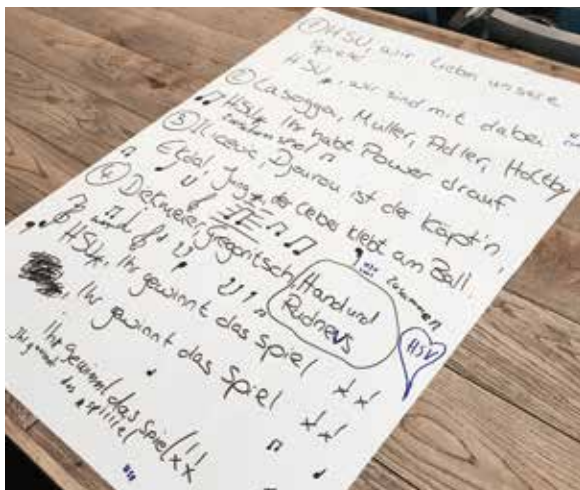 ① HSV, wir lieben unsere
Spieler
HSV, wir sind mit dabei
② Lasogga, Müller, Adler, Holtby
HSV, Ihr habt Power drauf.
③ Ilicevic, Djourou ist der Kapt'n,
Ekdal, Jung, der Kleber klebt am Ball
④ Diekmeier, Gregoritsch,
Hand und
Rudnevs
zusammen
HSV
HSV, Ihr gewinnt das Spiel
Ihr gewinnt das Spiel
Ihr gewinnt das Spiel!!
Ihr gewinnt das spiiiel
HSV